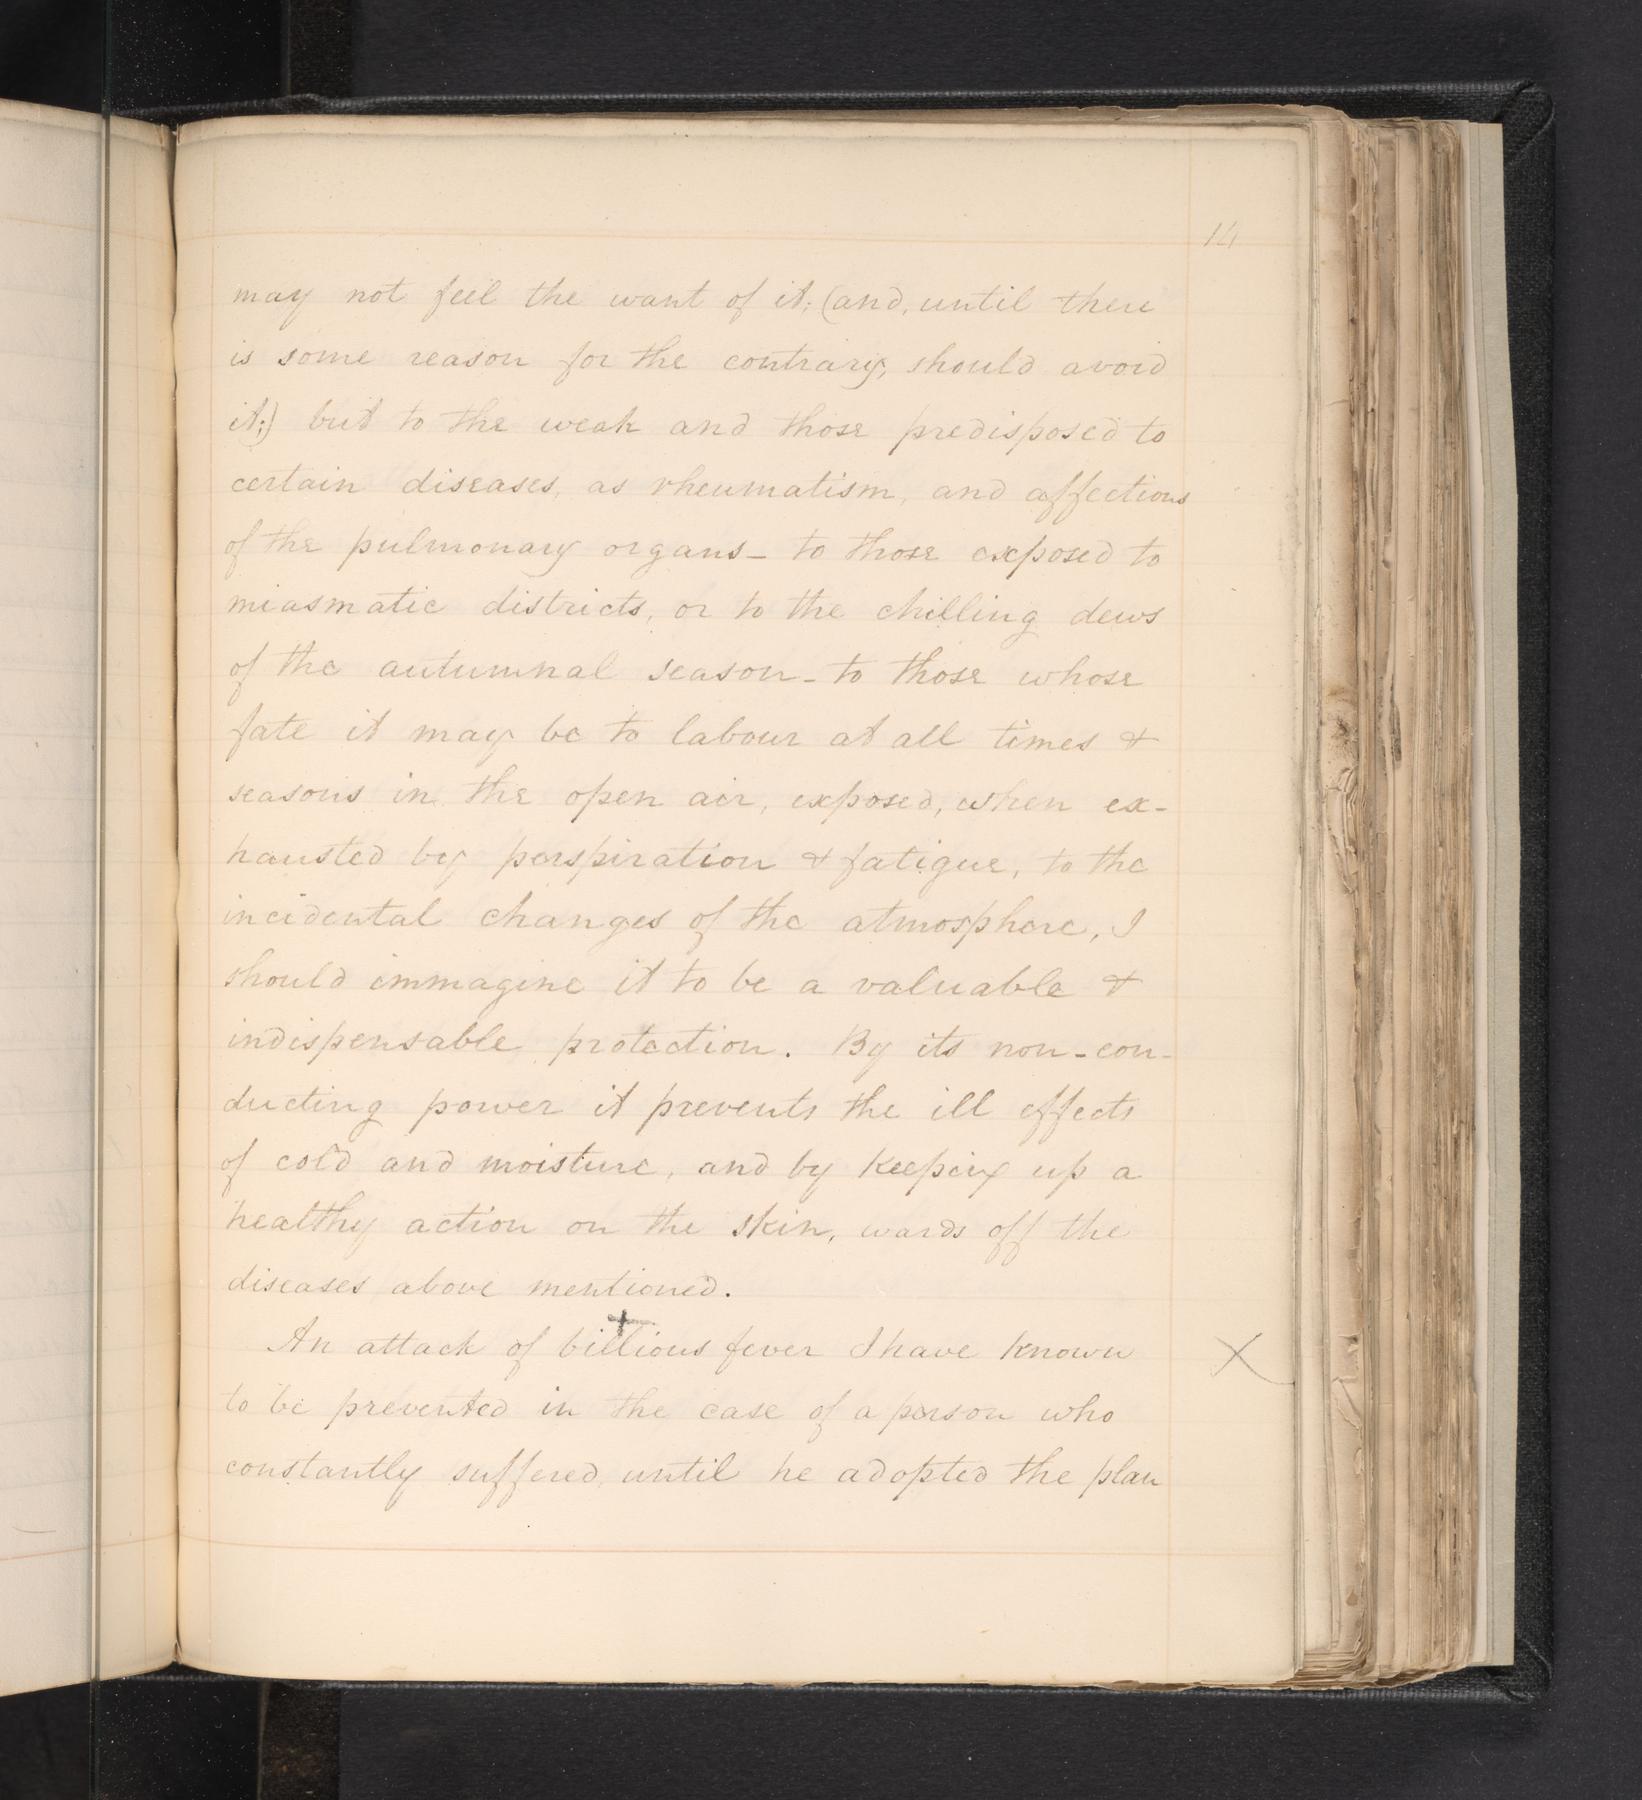 14
may not feel the want of it; (and, until there
is some reason for the contrary, should avoid
it;) but to the weak and those predisposed to
certain diseases, as rheumatism, and affections
of the pulmonary organs - to those exposed to
miasmatic districts, or to the chilling dews
of the autumnal season - to those whose
fate it may be to labour at all times &
seasons in the open air, exposed, when ex-
hausted by perspiration & fatigue, to the
incidental changes of the atmosphere, I
should immagine it to be a valuable &
indispensable protection. By its non-con-
ducting power it prevents the ill effects
of cold and moisture, and by keeping up a
healthy action on the skin, wards off the
diseases above mentioned.
+
An attack of billious fever I have known X
to be prevented in the case of a person who
constantly suffered, until he adopted the plan